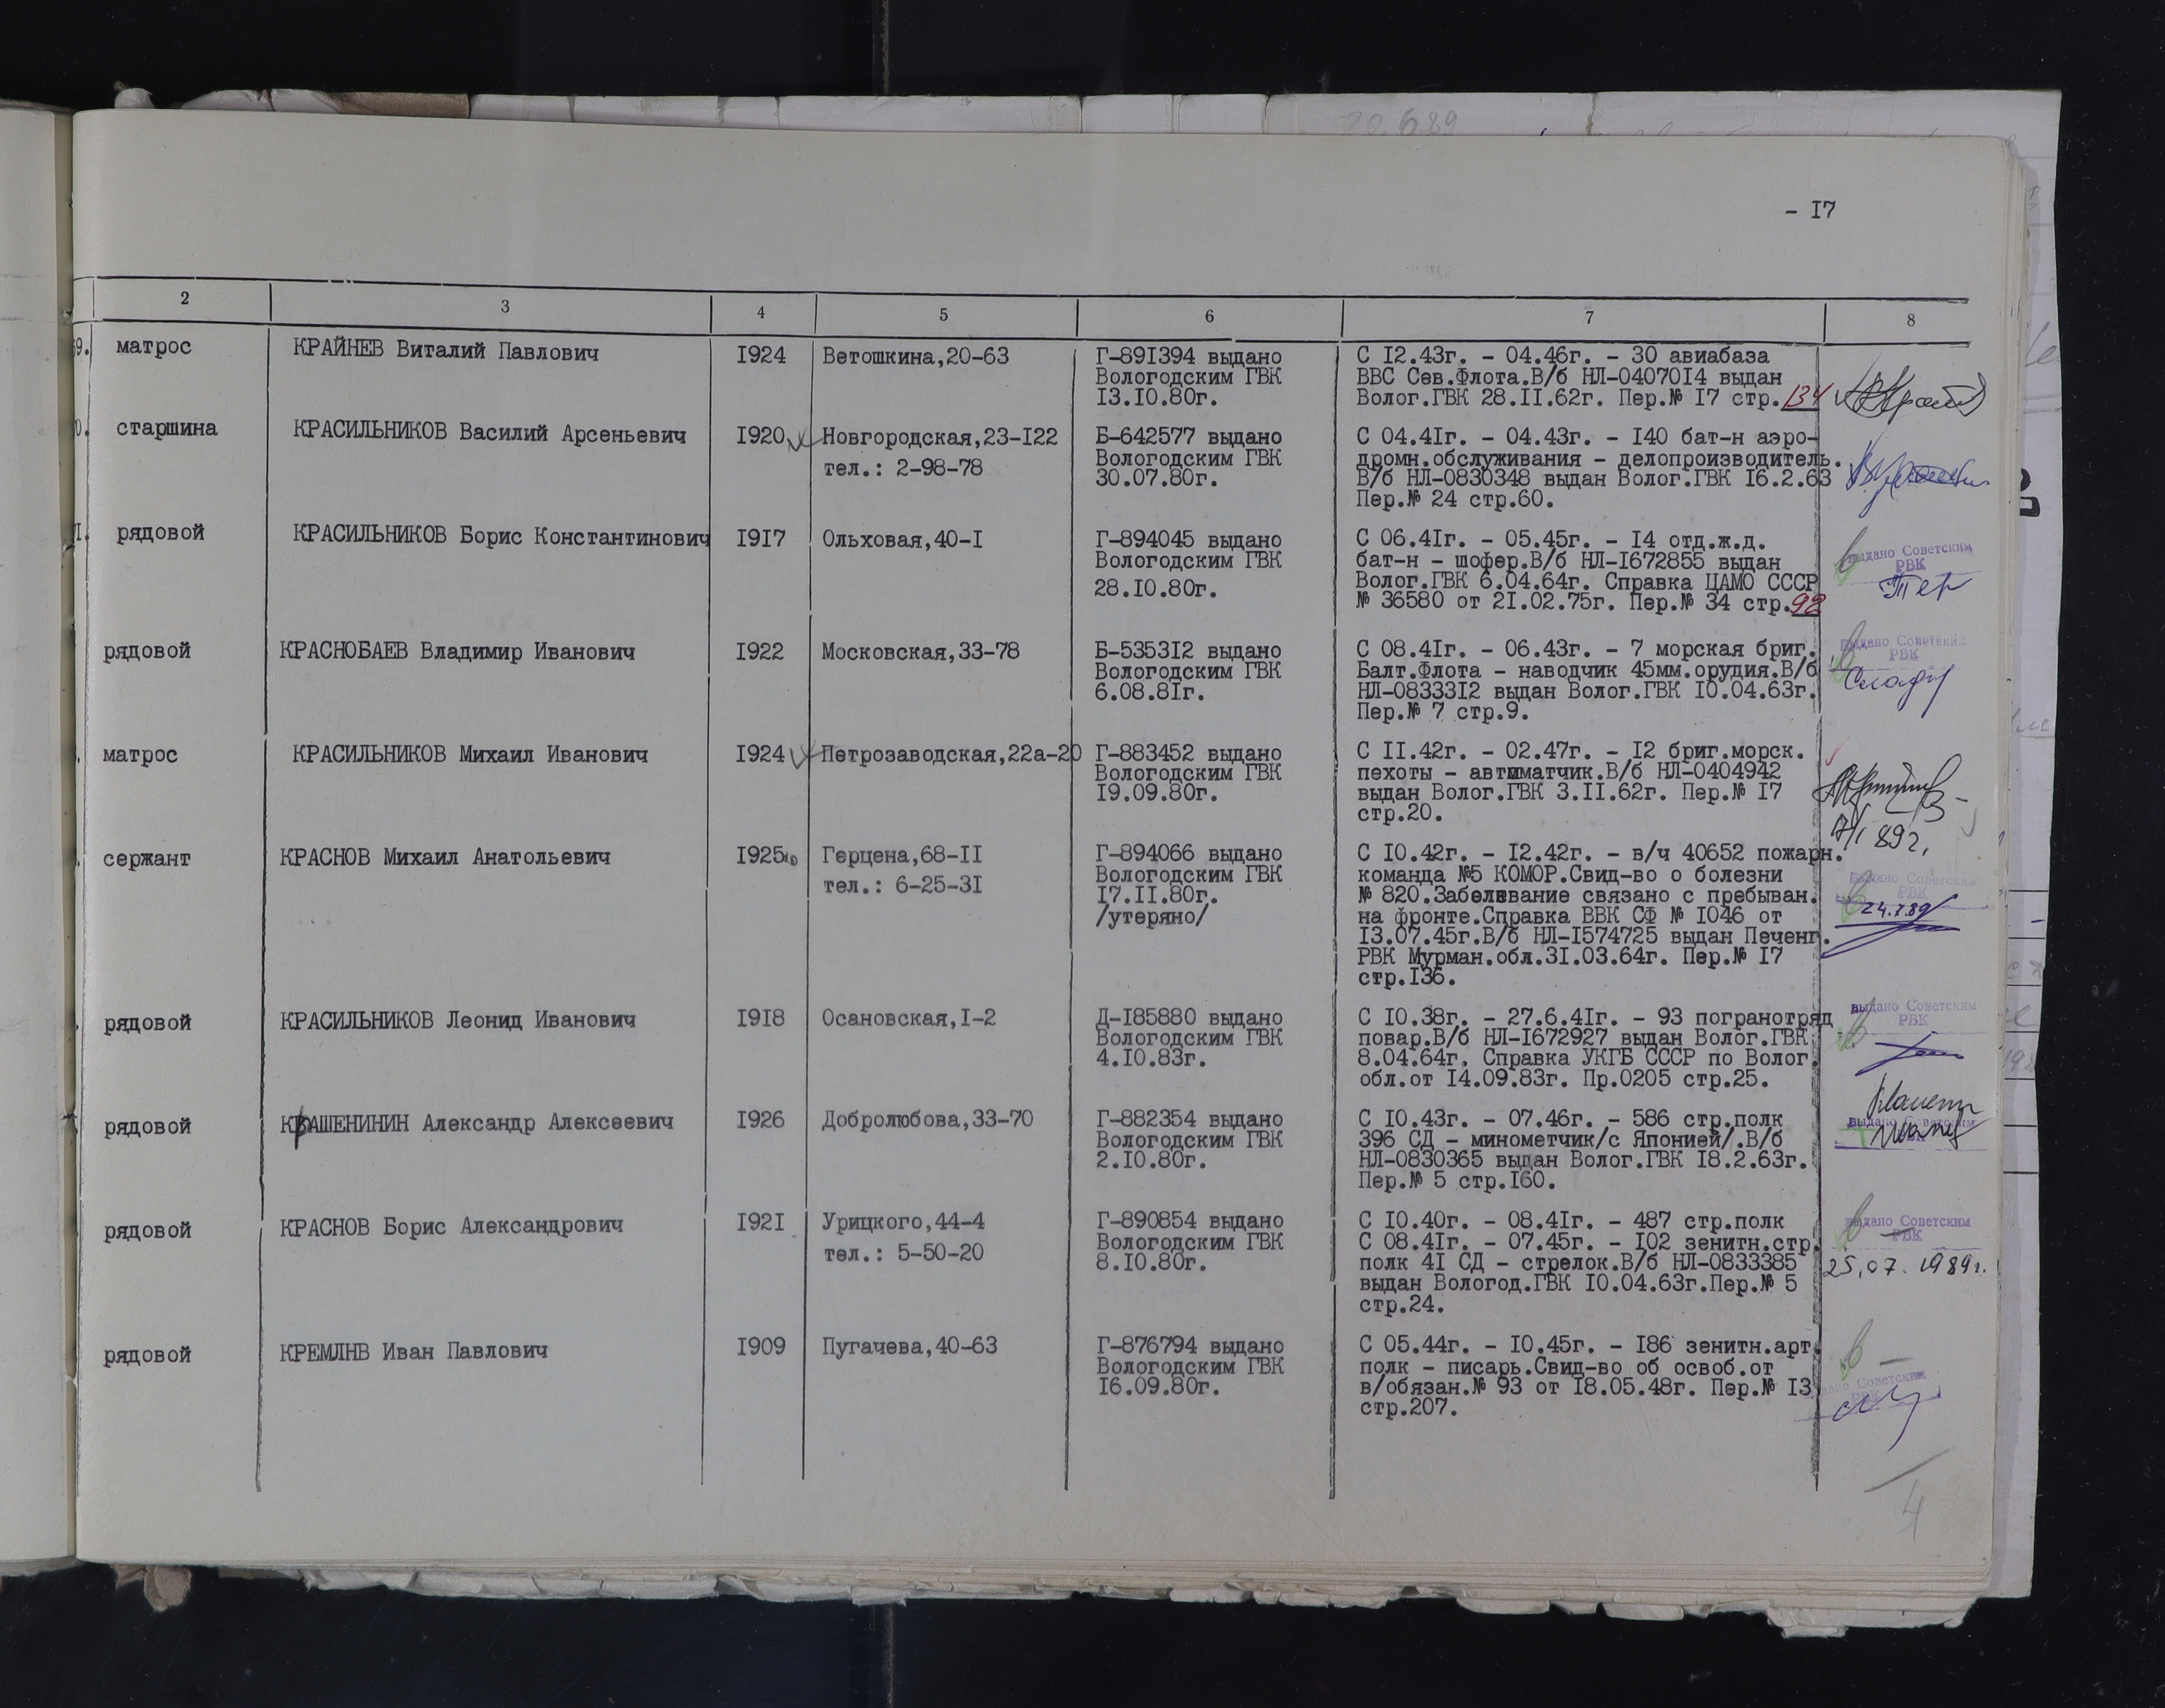 20.6.89
- I7
2 3 4 5 6 7 8
9. матрос КРАЙНЕВ Виталий Павлович I924 Ветошкина,20-63 Г-89I394 выдано С I2.43г. - 04.46г. - 30 авиабаза
Вологодским ГВК ВВС Сев.Флота.В/б НЛ-04070I4 выдан
I3.I0.80г. Волог.ГВК 28.II.62г. Пер.№ I7 стр.134
0. старшина КРАСИЛЬНИКОВ Василий Арсеньевич I920 Новгородская,23-I22 Б-642577 выдано С 04.4Iг. - 04.43г. - I40 бат-н аэро-
тел.: 2-98-78 Вологодским ГВК дромн.обслуживания - делопроизводитель.
30.07.80г. В/б НЛ-0830348 выдан Волог.ГВК I6.2.63
Пер.№ 24 стр.60.
I. рядовой КРАСИЛЬНИКОВ Борис Константинович I9I7 Ольховая,40-I Г-894045 выдано С 06.4Iг. - 05.45г. - I4 отд.ж.д.
Вологодским ГВК бат-н - шофер.В/б НЛ-I672855 выдан
28.I0.80г. Волог.ГВК 6.04.64г. Справка ЦАМО СССР
№ 36580 от 2I.02.75г. Пер.№ 34 стр.92
выдано Советским
РВК
рядовой КРАСНОБАЕВ Владимир Иванович I922 Московская,33-78 Б-5353I2 выдано С 08.4Iг. - 06.43г. - 7 морская бриг.
Вологодским ГВК Балт.Флота - наводчик 45мм.орудия.В/б
6.08.8Iг. НЛ-08333I2 выдан Волог.ГВК I0.04.63г.
Пер.№ 7 стр.9.
выдано Советским
РВК
. матрос КРАСИЛЬНИКОВ Михаил Иванович I924 Петрозаводская,22а-20 Г-883452 выдано С II.42г. - 02.47г. - I2 бриг.морск.
Вологодским ГВК пехоты - автоматчик.В/б НЛ-0404942
I9.09.80г. выдан Волог.ГВК 3.II.62г. Пер.№ I7
стр.20.
89г.
. сержант КРАСНОВ Михаил Анатольевич I925 Герцена,68-II Г-894066 выдано С I0.42г. - I2.42г. - в/ч 40652 пожарн.
тел.: 6-25-3I Вологодским ГВК команда №5 КОМОР.Свид-во о болезни
I7.II.80г. № 820.Заболевание связано с пребыван.
/утеряно/ на фронте.Справка ВВК СФ № I046 от
I3.07.45г.В/б НЛ-I574725 выдан Печенг.
РВК Мурман.обл.3I.03.64г. Пер.№ I7
стр.I36.
выдано Советским
РВК
24.7.89
. рядовой КРАСИЛЬНИКОВ Леонид Иванович I9I8 Осановская,I-2 Д-I85880 выдано С I0.38г. - 27.6.4Iг. - 93 погранотряд
Вологодским ГВК повар.В/б НЛ-I672927 выдан Волог.ГВК
4.I0.83г. 8.04.64г. Справка УКГБ СССР по Волог.
обл.от I4.09.83г. Пр.0205 стр.25.
выдано Советским
РВК
рядовой КРАШЕНИНИН Александр Алексеевич I926 Добролюбова,33-70 Г-882354 выдано С I0.43г. - 07.46г. - 586 стр.полк
Вологодским ГВК 396 СД - минометчик/с Японией/.В/б
2.I0.80г. НЛ-0830365 выдан Волог.ГВК I8.2.63г.
Пер.№ 5 стр.I60.
рядовой КРАСНОВ Борис Александрович I92I Урицкого,44-4 Г-890854 выдано С I0.40г. - 08.4Iг. - 487 стр.полк
тел.: 5-50-20 Вологодским ГВК С 08.4Iг. - 07.45г. - I02 зенитн.стр.
8.I0.80г. полк 4I СД - стрелок.В/б НЛ-0833385
выдан Вологод.ГВК I0.04.63г.Пер.№ 5
стр.24.
выдано Советским
РВК
25.07.1989г.
рядовой КРЕМЛНВ Иван Павлович I909 Пугачева,40-63 Г-876794 выдано С 05.44г. - I0.45г. - I86 зенитн.арт.
Вологодским ГВК полк - писарь.Свид-во об освоб.от
I6.09.80г. в/обязан.№ 93 от I8.05.48г. Пер.№ I3
стр.207.
4